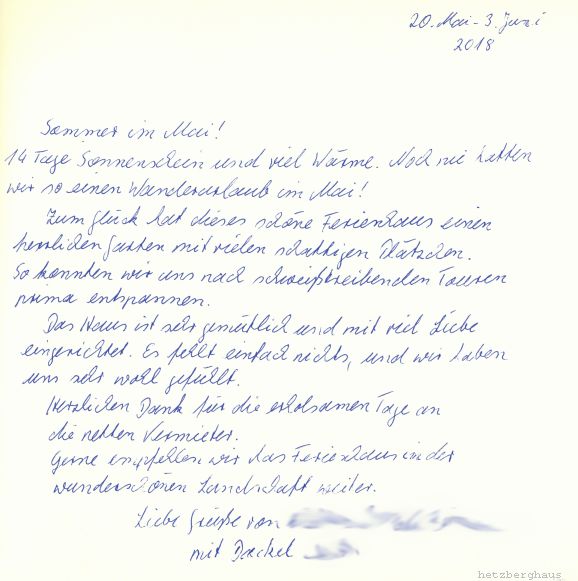 20. Mai - 3. Juni
2018
Sommer im Mai!
14 Tage Sonnenschein und viel Wärme. Noch nie hatten
wir so einen Wanderurlaub im Mai!
Zum Glück hat dieses schöne Ferienhaus einen
herrlichen Garten mit vielen schattigen Plätzchen.
So konnten wir uns nach schweißtreibenden Touren
prima entspannen.
Das Haus ist sehr gemütlich und mit viel Liebe
eingerichtet. Es fehlt einfach nichts, und wir haben
uns sehr wohl gefühlt.
Herzlichen Dank für die erholsamen Tage an
die netten Vermieter.
Gerne empfehlen wir das Ferienhaus in der
wunderschönen Landschaft weiter.
Liebe Grüße von
mit Dackel
hetzberghaus